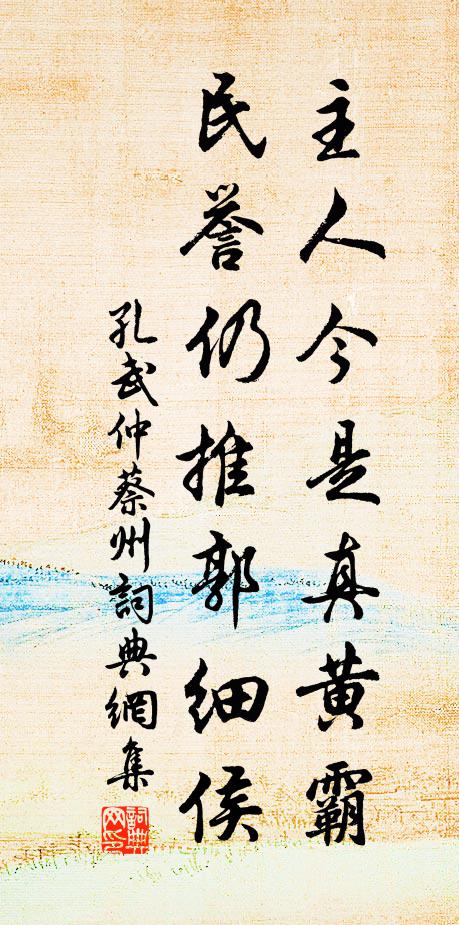 主人今是真黄霸
民誉仍推郭细侯
孔武仲蔡州詞典網集
詞典網印